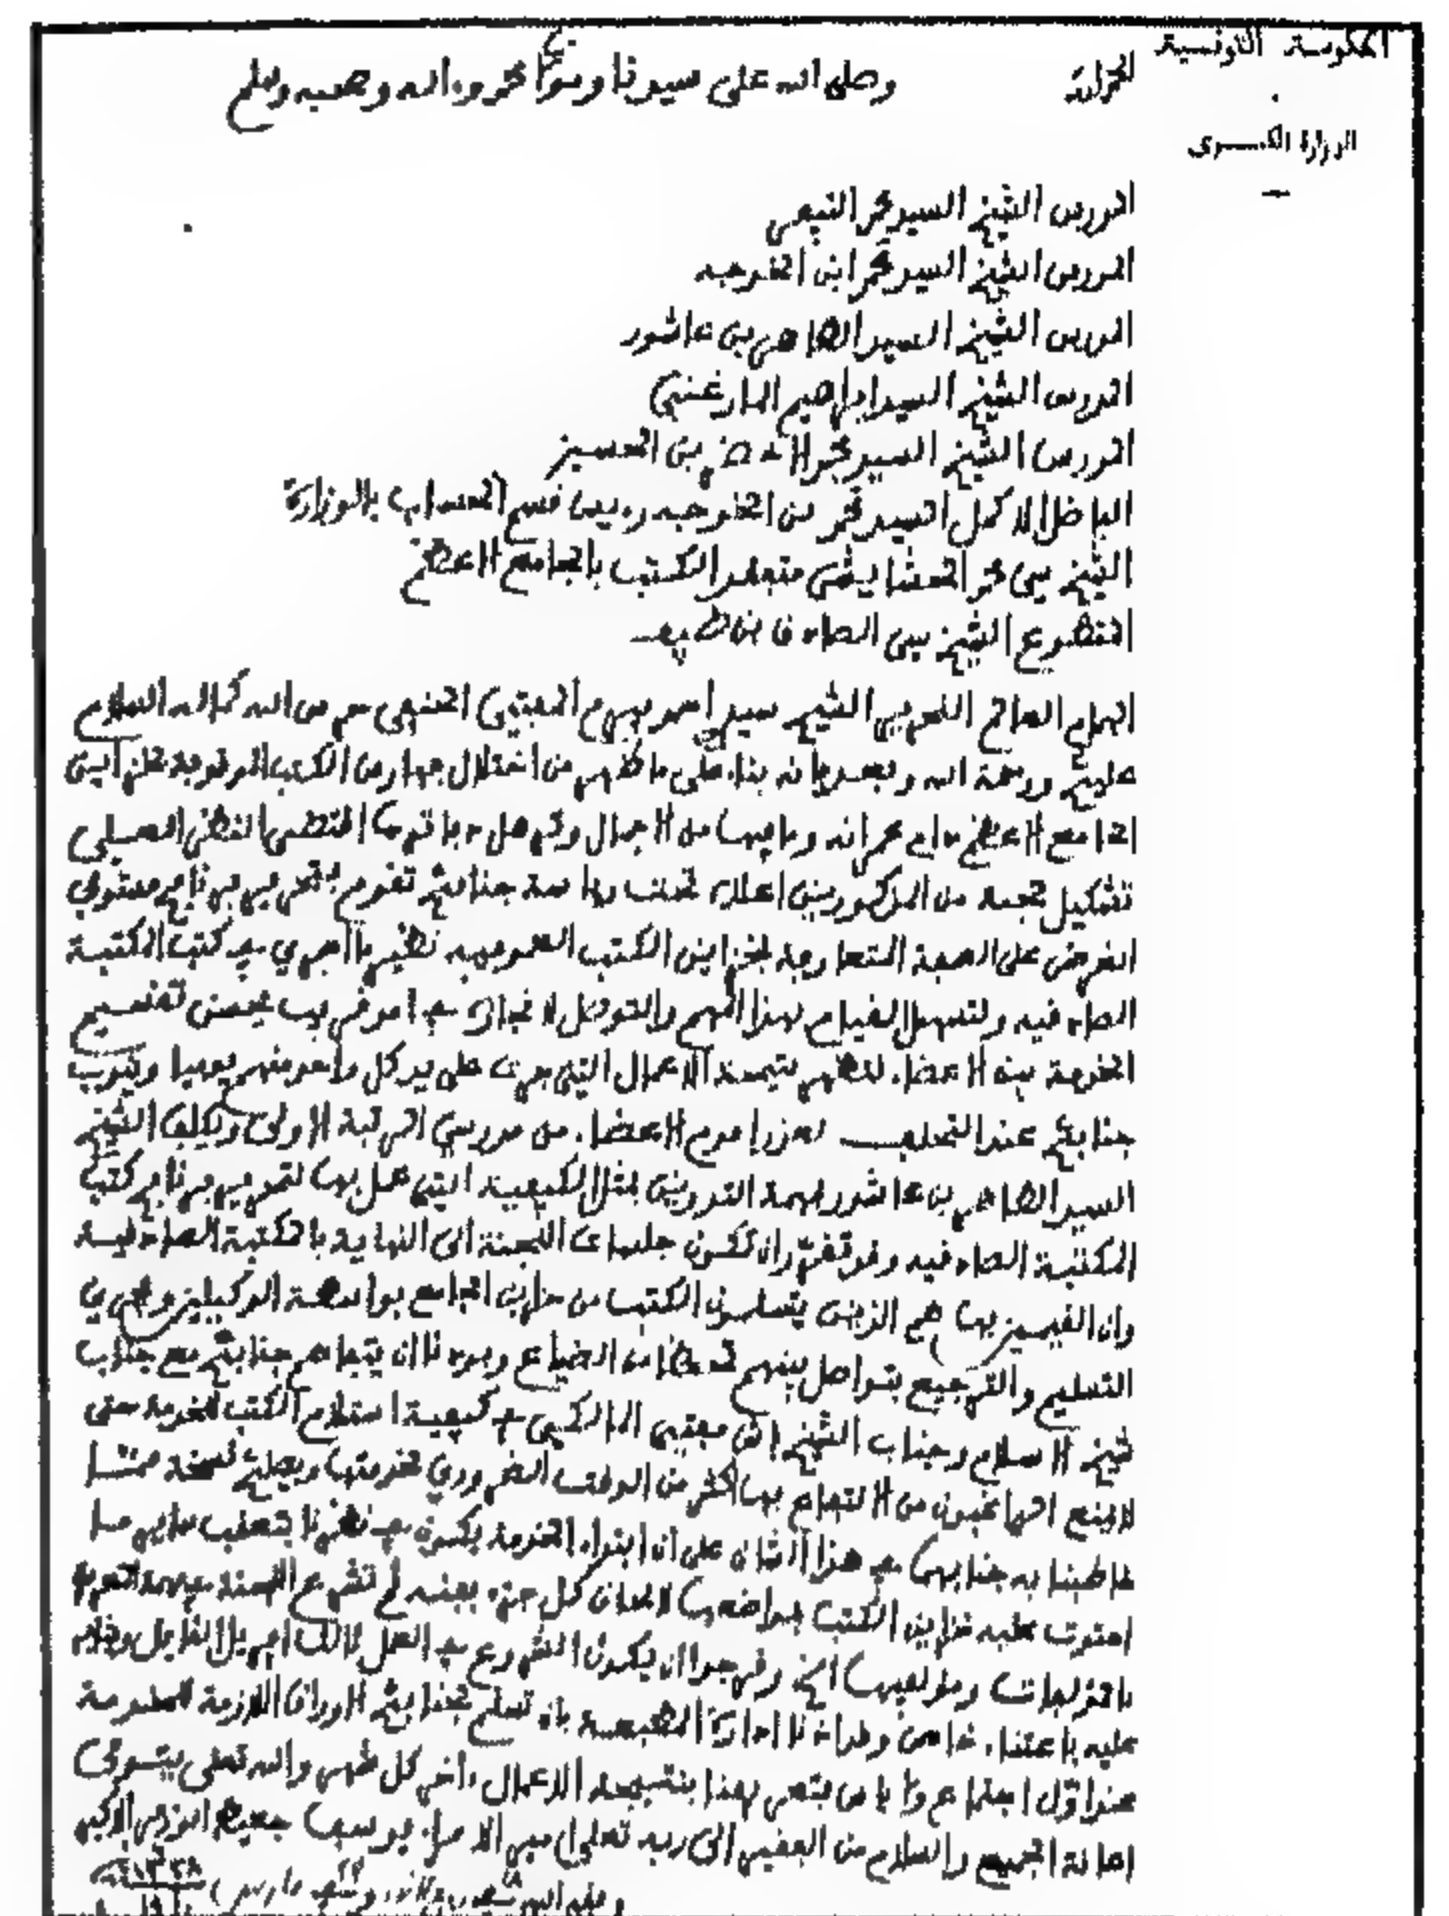 الحكومة التونسية
الوزارة الكبرى
الحمد لله
وصلى الله على سيدنا ومولانا محمد وءاله وصحبه وسلم
المدرس الشيخ السيد محمد النيفر
المدرس الشيخ السيد محمد ابن الخوجه
المدرس الشيخ السيد الطاهر بن عاشور
المدرس الشيخ السيد ابراهيم المارغني
المدرس الشيخ السيد محمد الاخضر بن الحسين
الفاضل الاكمل السيد محمد بن الخوجه رءيس قسم الحساب بالوزارة
الشيخ سي محمد الحشايشي متفقد الكتب بالجامع الاعظم
المتطوع الشيخ سي الصادق بن
الهمام العالم النحرير الشيخ سيد احمد بيرم المفتي الحنفي حرس الله كماله السلام
عليكم ورحمة الله وبعد فانه بناء على ما ظهر من اختلال فهارس الكتب الموجودة بخزاين
الجامع الاعظم دام عمرانه وما فيها من الاجمال اقتضى النظر
تشكيل لجنة من المذكورين اعلاه تحت رءاسة جنابكم تقوم بتحرير برنامج مستوفي
الغرض على الصفة المتعارفة لخزاين الكتب العموميه نظير ما اجري في كتب المكتبة
الصادقيه ولتسهيل القيام بهذا المهم والتوصل لانجازه في امد قريب يحسن تقسيم
الخدمة بين الاعضاء لتظهر نتيجة الاعمال التي جرت على يد كل واحد منهم يوميا وينوب
جنابكم عند التخلف لعذر اقدم الاعضاء من مدرسي المرتبة الاولى ويكلف الشيخ
السيد الطاهر بن عاشور بمهمة التدوين بمثل الكيفية التي عمل بها لتحرير برنامج كتب
المكتبة الصادقيه وان تكون جلسات اللجنة الى النهاية بالمكتبة الصادقية
وان القيمين بها هم الذين يتسلمون الكتب من خزاين الجامع بواسطة الوكيلين ويجري
التسليم والترجيع بتواصل بينهم تحفظا من الضياع وبودنا ان يتفاهم جنابكم مع جناب
شيخ الاسلام وجناب الشيخ باش مفتي المالكي في كيفية استلام الكتب للخدمة حتى
لا يمنع الراغبون من الانتفاع بها اكثر من الوقت الضروري لخدمتها ويصلكم نسخة مما
خاطبنا به جنابهما في هذا الشان على ان ابتداء الخدمة يكون في نظرنا بتعقب ساير ما
احتوت عليه خزاين الكتب كل جزء بعينه ثم تشرع اللجنة في مهمة التعريف
بالمؤلفات ومؤلفيها الخ ونرجوا ان يكون الشروع في العمل لذلك افريل القابل
عليه باعتناء خاص وقد اذنا ادارة المطبعة بان تسلم لجنابكم الاوراق اللازمة المطبوعة
عند اول اجتماع بنتيجة الاعمال ءاخر كل شهر والله تعلى يتولى
اعانة الجميع والسلام من الفقير الى ربه تعلى امير الامراء يوسف جعيط الوزير الاكبر